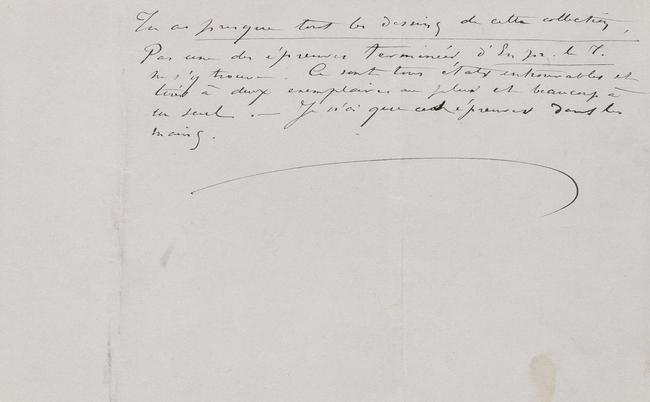 Tu as presque tout les dessins de cette collection,
Pas une des épreuves terminées, d'En pr. le T.
ne s'y trouve. Ce sont tous états introuvables et
tirés à deux exemplaires au plus et beaucoup à
un seul. — Je n'ai que ces épreuves dans les
mains.